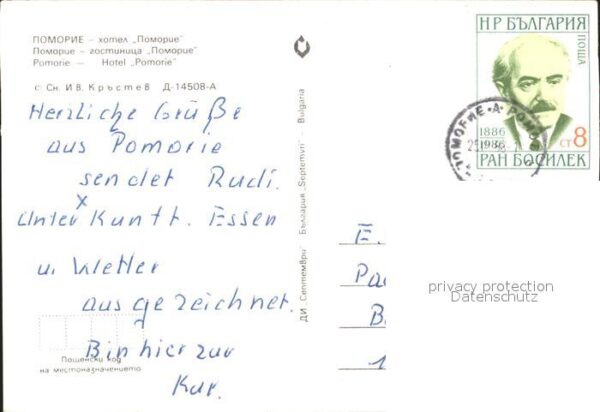 ПОМОРИЕ – хотел „Поморие"
Поморие – гостиница „Поморие"
Pomorie – Hotel „Pomorie"
Сн. Ив. Кръстев Д-14508-А
Herzliche Grüße
aus Pomorie
sendet Rudi.
x
Unterkunft. Essen
u. Wetter
ausgezeichnet.
Bin hier zur
Kur.
Пощенски код
на местоназначението
ДИ „Септември" България „Septemvri" Bulgaria
НР БЪЛГАРИЯ
ПОЩА
1886
1986
СТ 8
РАН БОСИЛЕК
ПОМОРИЕ • А
E.
Pa
B
1
privacy protection
Datenschutz